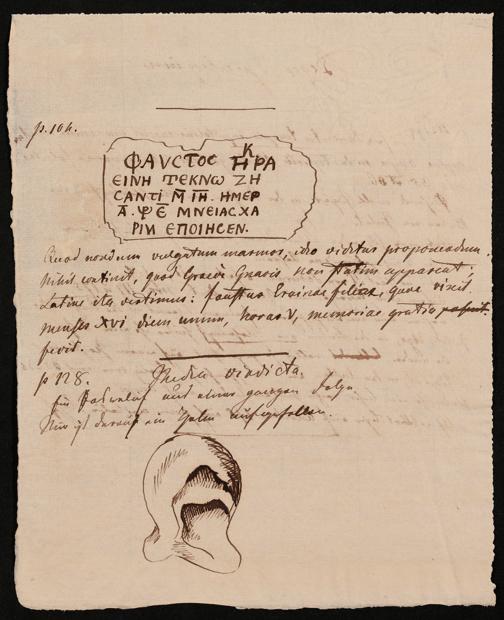 p. 104.
ΦΑVCΤΟC ΚΗΡΑ
ΕΙΝΗ ΤΕΚΝΩ ΖΗ
CΑΝΤΙ Μ̅ Ι̅Η̅. ΗΜΕΡ
Α̅. ΨΕ̅ ΜΝΕΙΑC ΧΑ
ΡΙΝ ΕΠΟΙΗCΕΝ.
Quod nondum vulgatum marmor, ideo videtur proponendum.
Nihil continet, quod Graece Gnaris non statim appareat,
Latine ita vertimus: Faustus Erainae filiae, quae vixit
menses XVI diem unum, horas V, memoriae gratia posuit.
fecit.
p 128. vindicta
und eines ganzen
Nur ist darauf ein Helm aufgefallen.